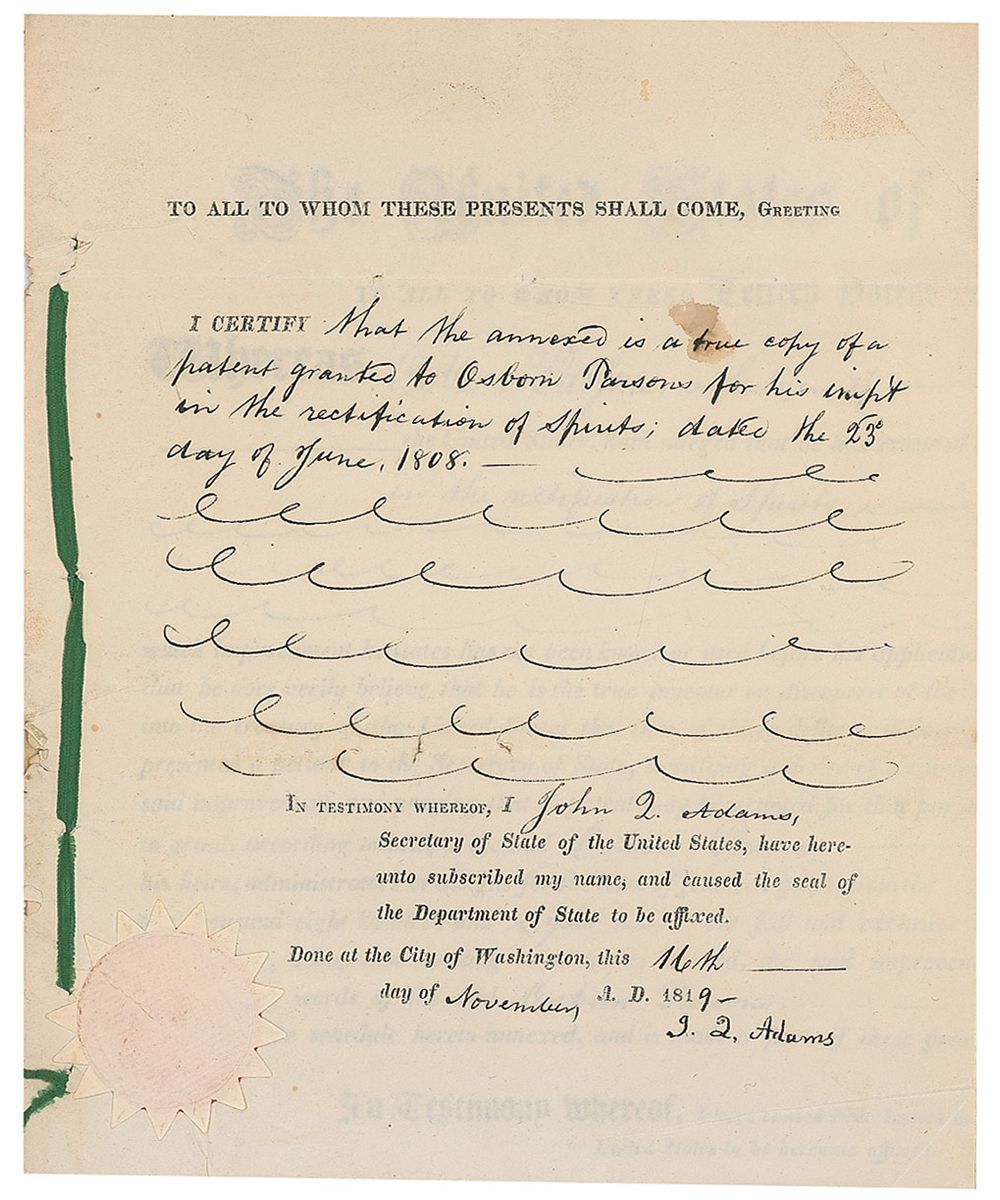 TO ALL TO WHOM THESE PRESENTS SHALL COME, GREETING
I CERTIFY that the annexed is a true copy of a
patent granted to Osborn Parsons for his impt
in the rectification of spirits; dated the 23d
day of June, 1808.
IN TESTIMONY WHEREOF, I John Q. Adams,
Secretary of State of the United States, have here-
unto subscribed my name, and caused the seal of
the Department of State to be affixed.
Done at the City of Washington, this 16th
day of November, A. D. 1819-
J. Q. Adams